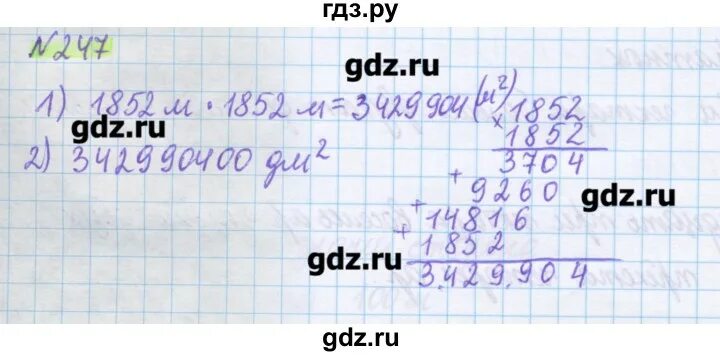 гдз.ру
№247
gdz.ru
1) 1852 м · 1852 м = 3429904 (м²)
gdz.ru
2) 342990400 дм²
× 1852
1852
3704
+ 9260
gdz.ru
+ 14816
+ 1852
gdz.ru
3.429.904
gdz.ru